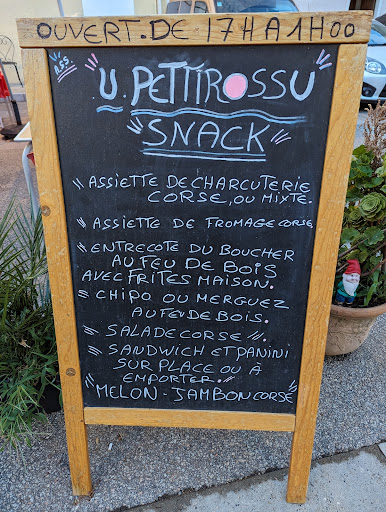 OUVERT. DE 17H A 1H00
A.S.S
U. PETTIROSSU
SNACK
ASSIETTE DE CHARCUTERIE
CORSE, OU MIXTE.
ASSIETTE DE FROMAGE CORSE.
ENTRECOTE DU BOUCHER
AU FEU DE BOIS
AVEC FRITES MAISON.
CHIPO OU MERGUEZ
AU FEU DE BOIS.
SALADE CORSE
SANDWICH ET PANINI
SUR PLACE OU À
EMPORTER.
MELON - JAMBON CORSE